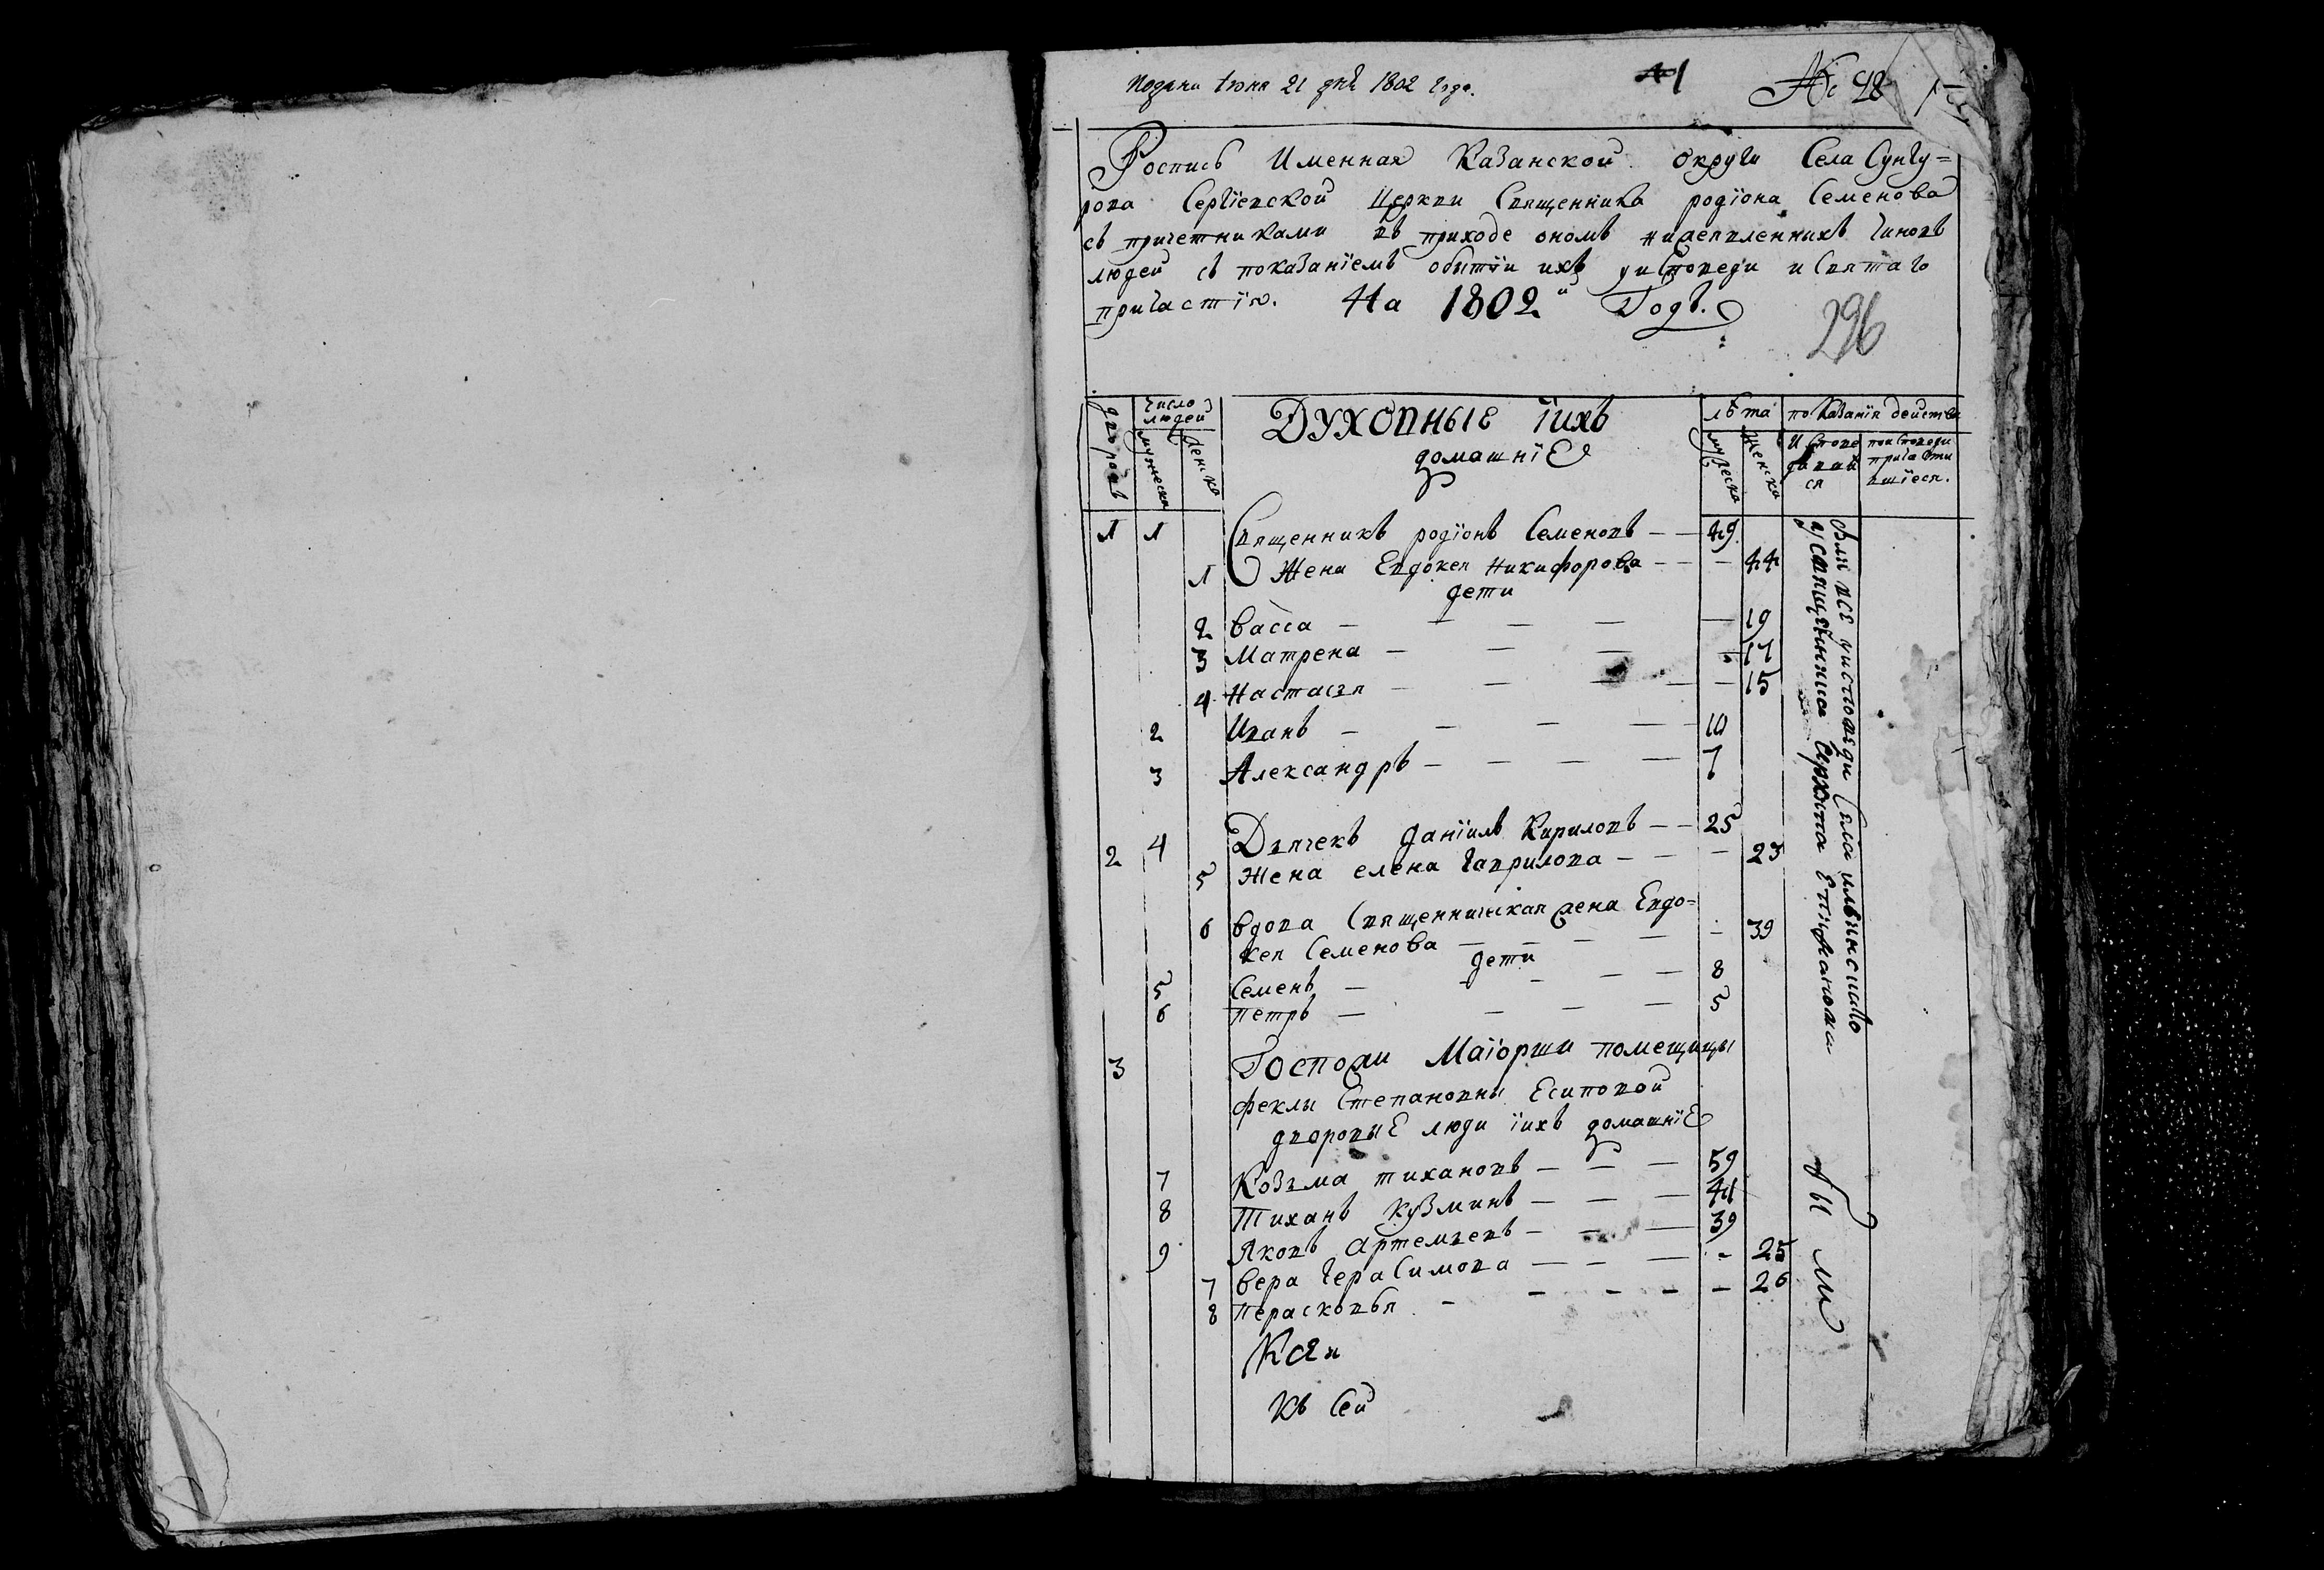 Подани Iюня 21 дня 1802 года.
№ 48
Роспись Именная Казанской округи Села Сунгу=
рова Сергiевской Церкви Священника родiона Семенова
съ причетниками въ приходе ономъ нижеявленныхъ чиновъ
людей съ показанiемъ обытiи ихъ уисповеди и Святаго
причастiя. На 1802й Годъ.
296
дворовъ
число людей
мужеска
женска
ДУХОВНЫЕ iихъ
домашнiЕ
лѣта
мужеска
женска
показанiя действа
Исповедавшися
поисповеди причастившiеся.
1 1 Священникъ родiонъ Семеновъ — — 49
1 Жена Евдокея Никифорова — — — 44
дети
2 Васса — — — — — 19
3 Матрена — — — — 17
4 Настасья — — — — — 15
2 Иванъ — — — — 10
3 Александръ — — — — 7
2 4 Дьячекъ Данiилъ Кириловъ — — 25
5 Жена елена гаврилова — — — 23
6 вдова Священническая жена Евдо=
кея Семенова — — — — — 39
дети
5 Семенъ — — — — — 8
6 петръ — — — — 5
3 Госпожи Маiорши помещицы
феклы Степановны Есиповой
дворовыЕ люди iихъ домашнiЕ
7 Козьма тихановъ — — — 59
8 Тиханъ кузминъ — — — 41
9 Яковъ артемьевъ — — — 39
7 вера герасимова — — — — 25
8 перасковья — — — — — 26
Къ Сей
были все уисповеди Села ильинскаго
усвященника
были